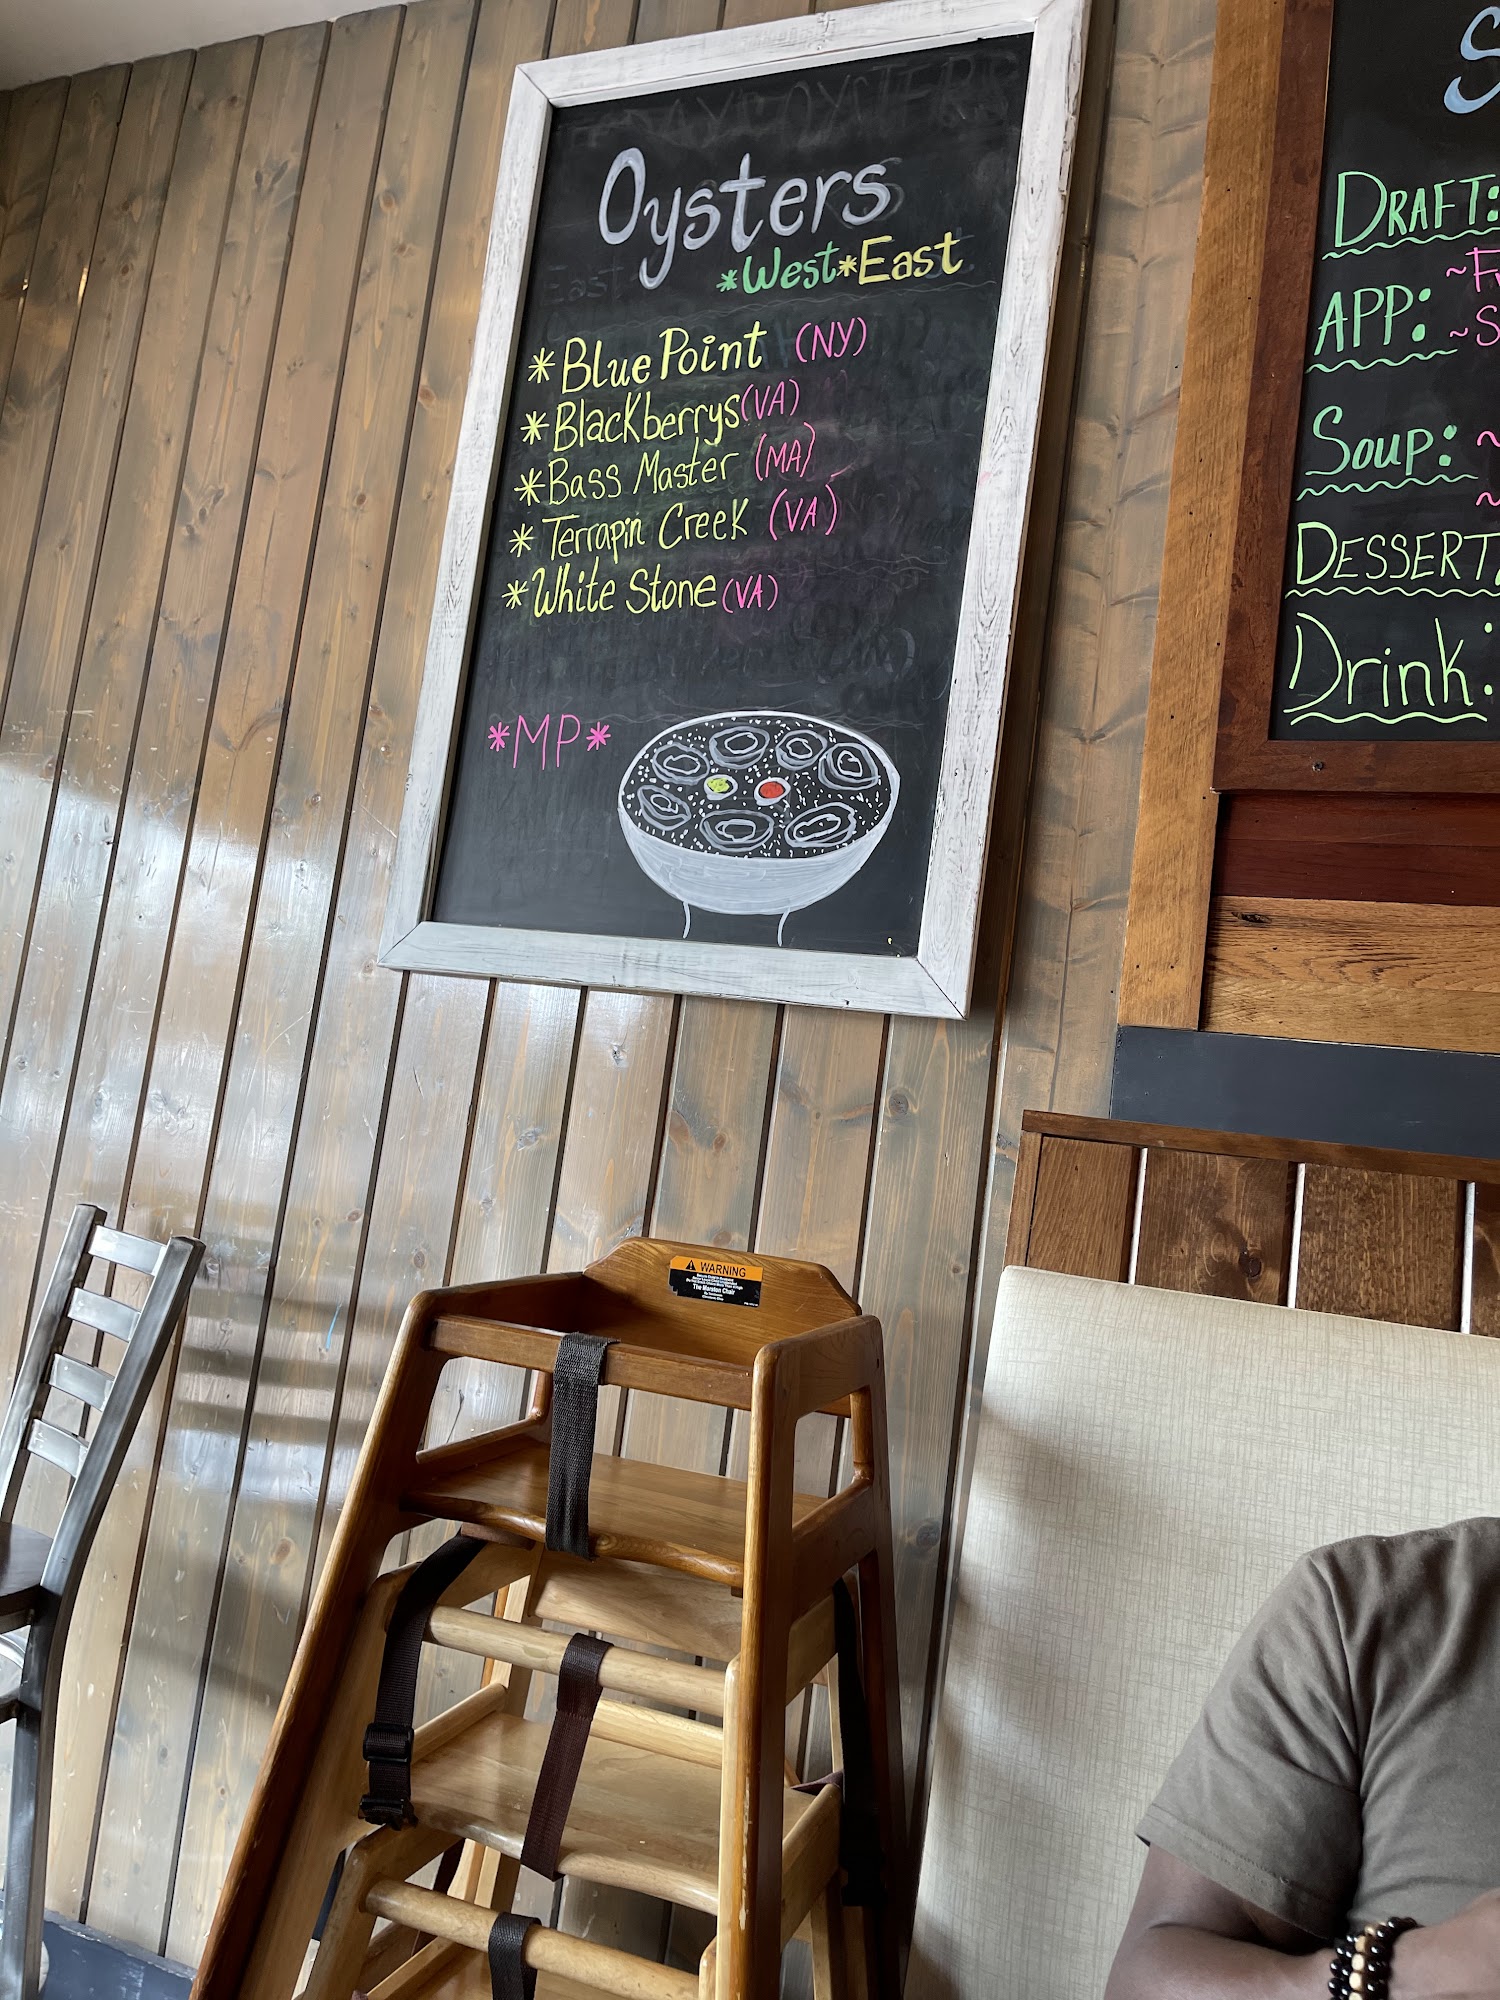 Oysters
*West*East
*Blue Point (NY)
*Blackberrys (VA)
*Bass Master (MA)
*Terrapin Creek (VA)
*White Stone (VA)
*MP*
DRAFT:
APP:
SOUP:
DESSERT
Drink:
WARNING
The Marston Chair